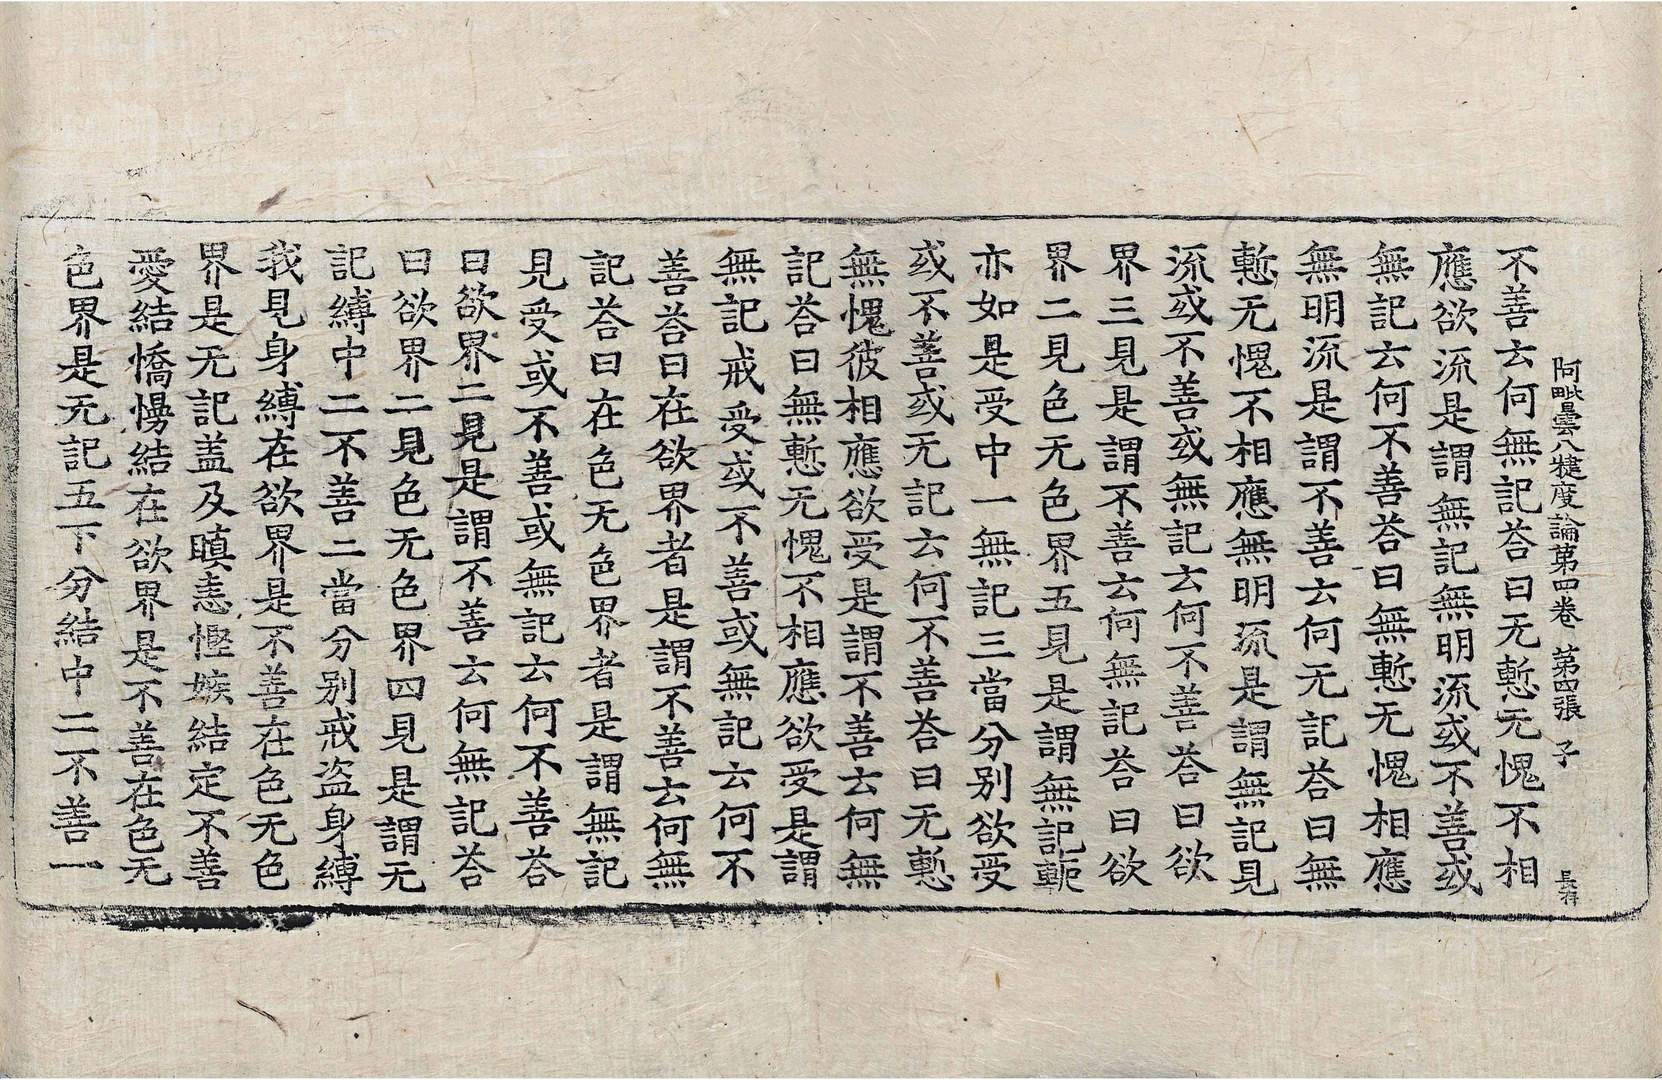 阿毗曇八犍度論第四卷 第四張 子
不善云何無記荅曰无慙无愧不相
應欲流是謂無記無明流或不善或
無記云何不善荅曰無慙无愧相應
無明流是謂不善云何无記荅曰無
慙无愧不相應無明流是謂無記見
流或不善或無記云何不善荅曰欲
界三見是謂不善云何無記荅曰欲
界二見色无色界五見是謂無記軛
亦如是受中一無記三當分別欲受
或不善或无記云何不善荅曰无慙
無愧彼相應欲受是謂不善云何無
記荅曰無慙无愧不相應欲受是謂
無記戒受或不善或無記云何不
善荅曰在欲界者是謂不善云何無
記荅曰在色无色界者是謂無記
見受或不善或無記云何不善荅
曰欲界二見是謂不善云何無記荅
曰欲界二見色无色界四見是謂无
記縛中二不善二當分別戒盜身縛
我見身縛在欲界是不善在色无色
界是无記盖及瞋恚慳嫉結定不善
愛結憍慢結在欲界是不善在色无
色界是无記五下分結中二不善一